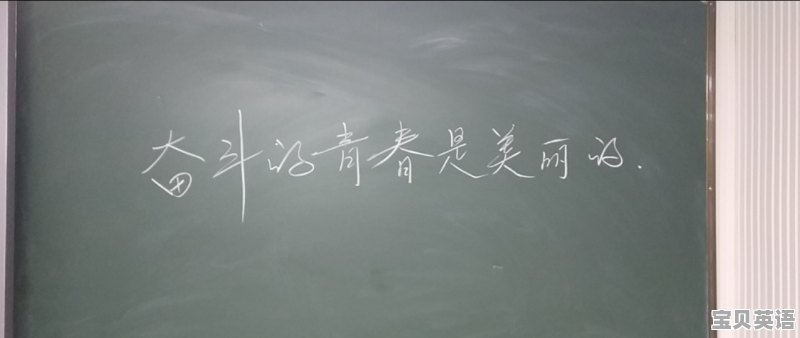 奋斗的青春是美丽的.
宝贝英语